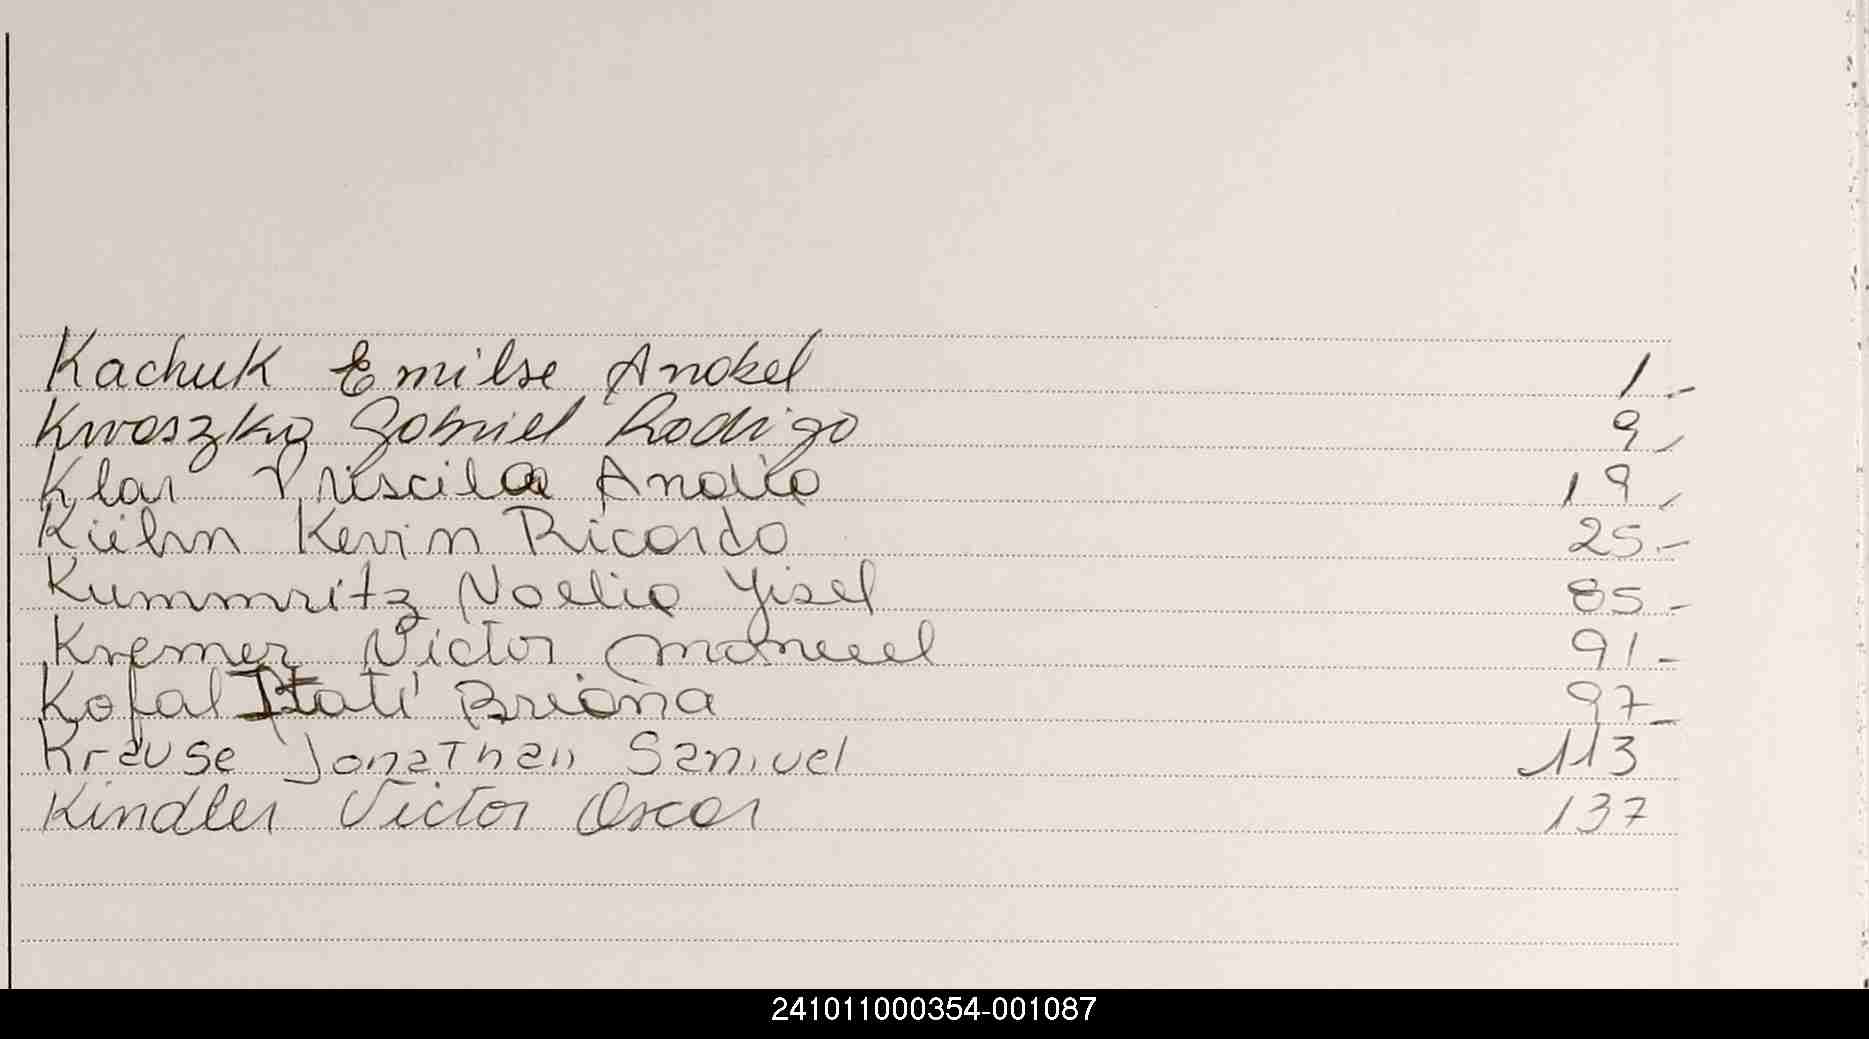 Kachuk Emilse Anabel 1.-
Kwoszka Gabriel Rodrigo 9,-
Klar Priscila Analia 19,-
Kiehn Kevin Ricardo 25.-
Kummritz Noelia Yisel 85.-
Kremer Victor Manuel 91.-
Kofal Itatí Briana 97.-
Krause Jonathan Samuel 113
Kindler Victor Oscar 137
241011000354-001087